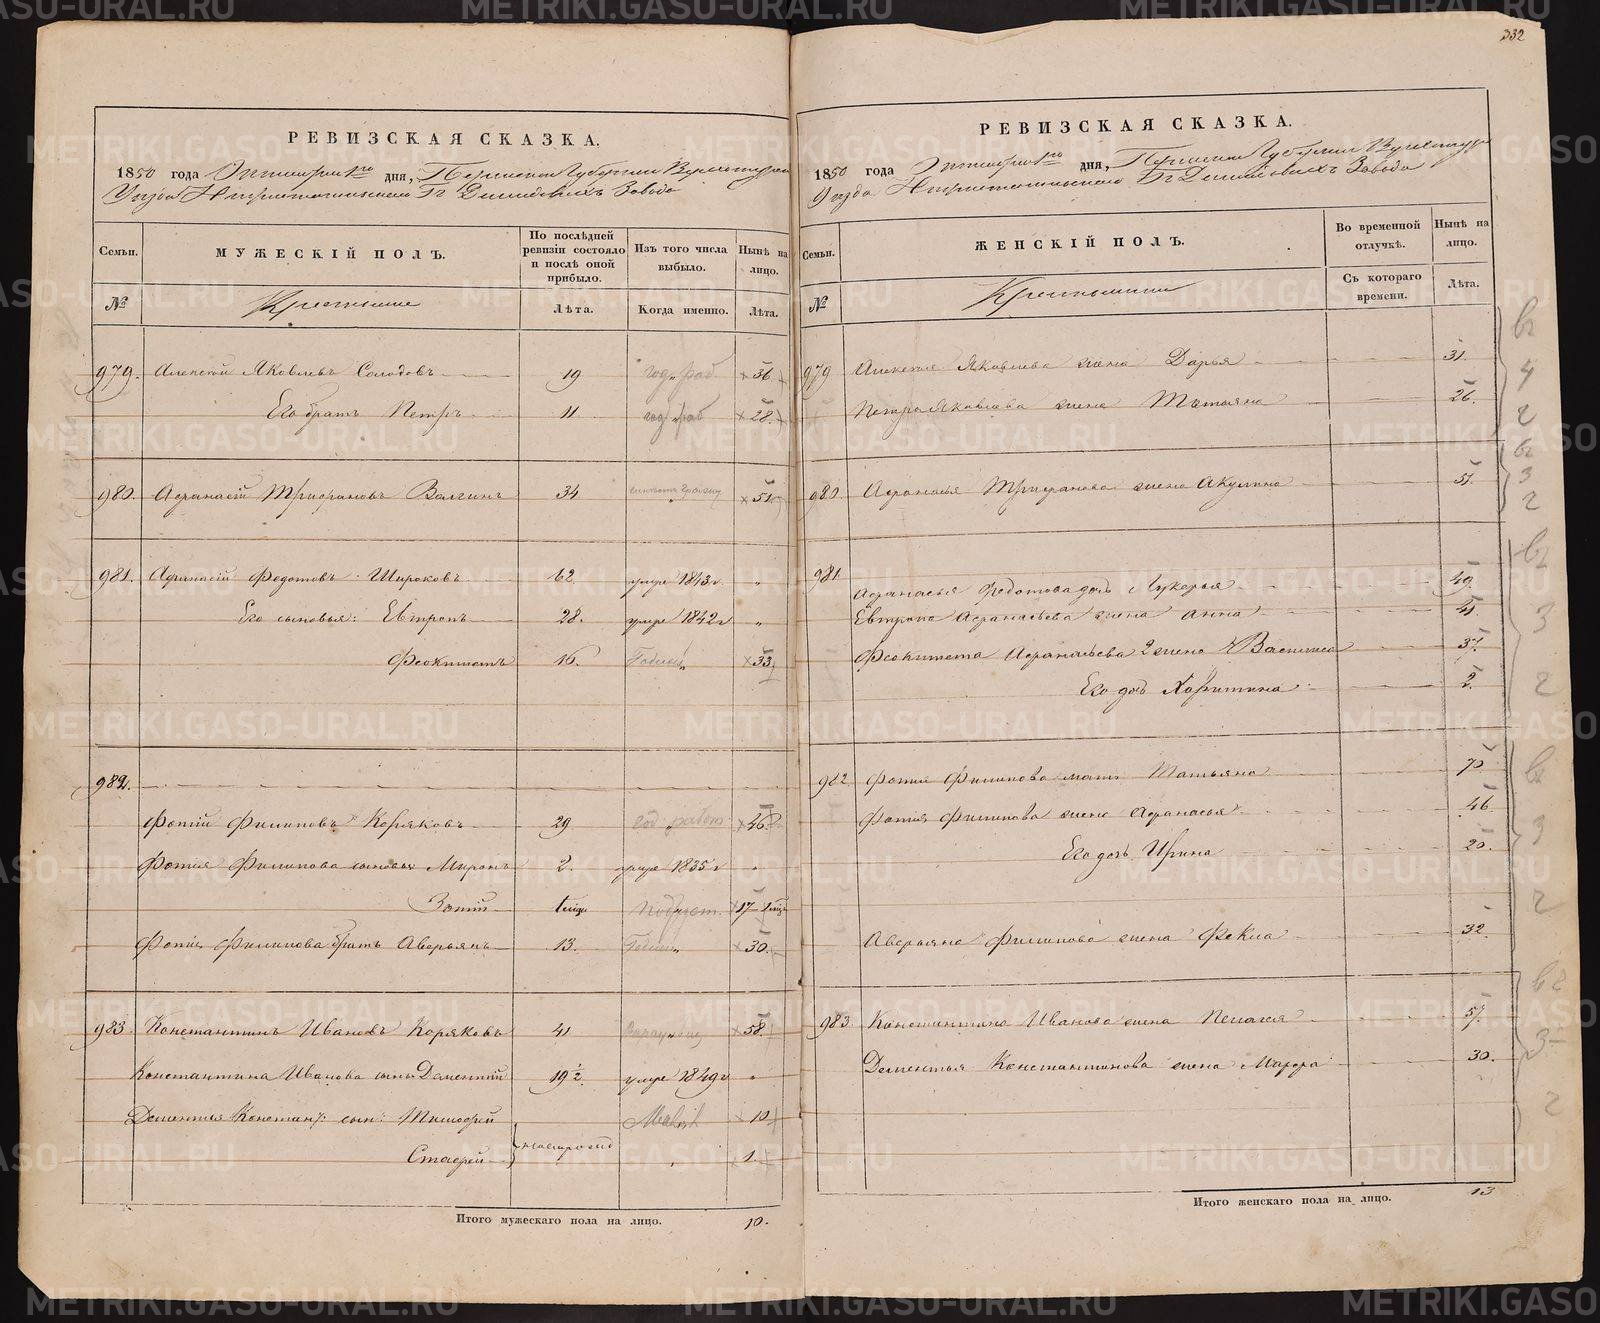 332
РЕВИЗСКАЯ СКАЗКА.
1850 года Октября 1го дня, Пермской Губернии Верхотурскаго
Уезда Нижнетагильскаго Гг Демидовыхъ Завода
Семьи. МУЖЕСКІЙ ПОЛЪ. По послѣдней ревизіи состояло и послѣ оной прибыло. Изъ того числа выбыло. Нынѣ на лицо.
№ Крестьяне Лѣта. Когда именно. Лѣта.
979. Алексей Яковлевъ Солодовъ 19 год. раб. 36.
Его братъ Петръ 11 год. раб 28.
980. Афанасій Трифоновъ Валгинъ 34 51.
981. Афанасій Федотовъ Широковъ 62 умре 1843 г "
Его сыновья: Евтропъ 28. умре 1842 г "
Феоктистъ 16. Годный 33
982.
Фотій Филиповъ Коряковъ 29 год. работ 46
Фотія Филипова сыновья Миронъ 2. умре 1835 г "
Зотій 1 мцъ Подраст. 17
Фотія Филипова братъ Аверьянъ 13. Годный 30.
983. Константинъ Ивановъ Коряковъ 41 58.
Константина Иванова сынъ Дементій 19½ умре 1849 г "
Дементья Констан: сын: Тимофей 10
Стафей } новорожд 1.
Итого мужескаго пола на лицо. 10.
РЕВИЗСКАЯ СКАЗКА.
1850 года Октября 1го дня, Пермской Губернии Верхотурскаго
Уезда Нижнетагильскаго Гг Демидовыхъ Завода
Семьи. ЖЕНСКІЙ ПОЛЪ. Во временной отлучкѣ. Нынѣ на лицо.
№ Крестьянки Съ котораго времени. Лѣта.
979 Алексея Яковлева жена Дарья 31.
Петра Яковлева жена Татьяна 26.
980. Афанасья Трифонова жена Акулина 51.
981 Афанасья Федотова дочь Лукерья 49.
Евтропа Афанасьева жена Анна 41.
Феоктиста Афанасьева 2 жена Василиса 37.
Его дочь Харитина 2.
982 Фотія Филипова мать Татьяна 70
Фотія Филипова жена Афанасья 46
Его дочь Ирина 20.
Аверьяна Филипова жена Фекла 32.
983. Константина Иванова жена Пелагея 57.
Дементья Константинова жена Марфа 30.
Итого женскаго пола на лицо. 13
METRIKI.GASO-URAL.RU